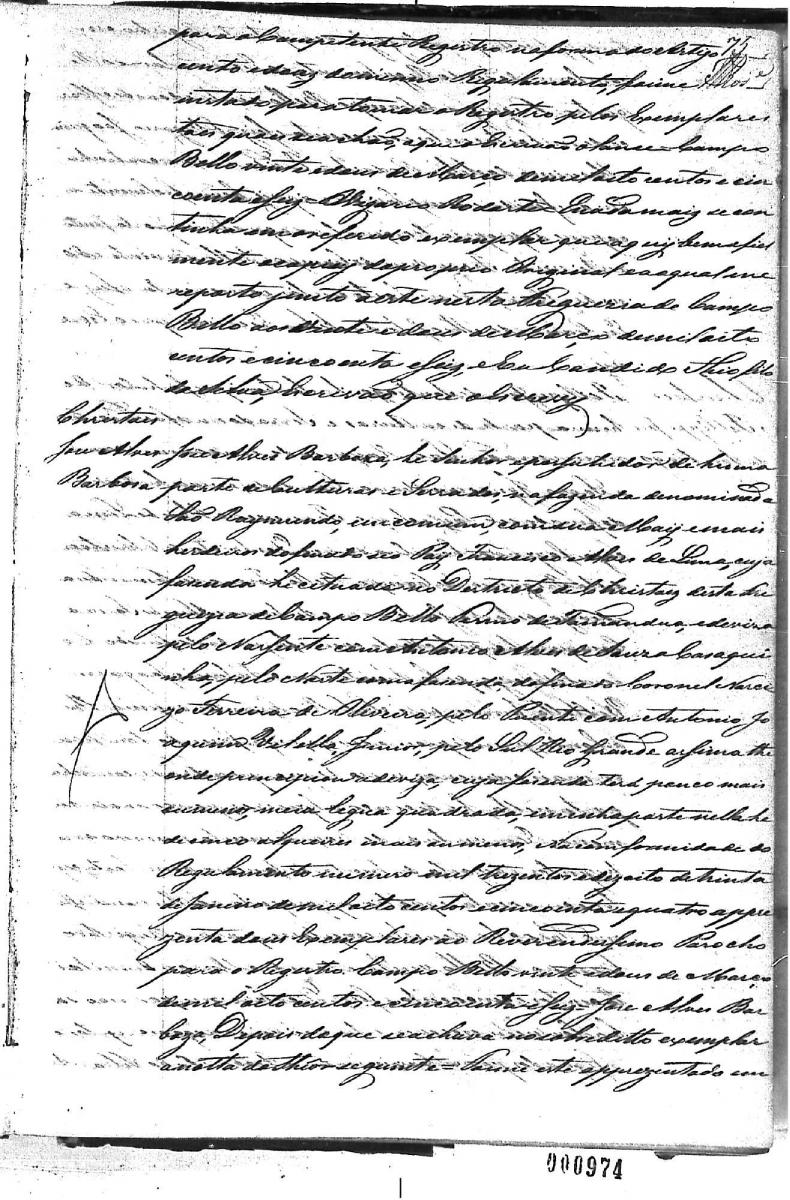 para o Competente Registro na forma do Artigo 75
cento e dez do mesmo Regulamento, foi me
mitado para tomar o Registro pelos Exemplares
tres que o Escrivão o lance Campo
Bello vinte e dous de Março de mil oito centos e cin
coenta e seiz Rodarte Enada maiz se con
tinha em o referido exemplar que aqui bem e fiel
mente copiey do proprio Original ao qual me
reporto junto a este nesta Freguezia de Campo
Bello aos vinte e dous de Março de mil oito
centos e cincoenta e seiz e Eu Candido Theofilo
da Silva, Escrivão que o Escrevy
Christais
Jose Alves Jose Alves Barboza, he Senhor e possuhidor de huma
Barbosa parte de Culturas e Serrados, na fazenda denominada
São Raymundo, em comum, com sua May e mais
herdeiros do finado seo Pay Francisco Alves de Lima, cuja
fazenda he cituada no Destricto de Christaiz desta Fre
guezia de Campo Bello Termo de Tamanduá, e deviza
pelo Nascente com Antonio Alves de Souza Casaqui
nha, pelo Norte com a fazenda do finado Coronel Narci
zo Ferreira de Oliveira, pelo Puente com Antonio Jo
aquim Villella Junior, pelo Sul Rio Grande assima the
onde principiou a deviza, cuja fazenda terá pouco mais
ou menos, meia legua quadrada, e minha parte nella he
de cinco alqueires mais ou menos, Na conformidade do
Regulamento numero mil trezentos e dezoito de trinta
de Janeiro de mil oito centos e cincoenta e quatro appre
zenta dous Exemplares ao Reverendissimo Parocho
para o Registro. Campo Bello vinte e dous de Março
de mil oito centos e cincoenta e seiz Jose Alves Bar
boza, Depois do que se achava no sobreditto exemplar
a notta do theor seguinte = Foi me este apprezentado em
000974